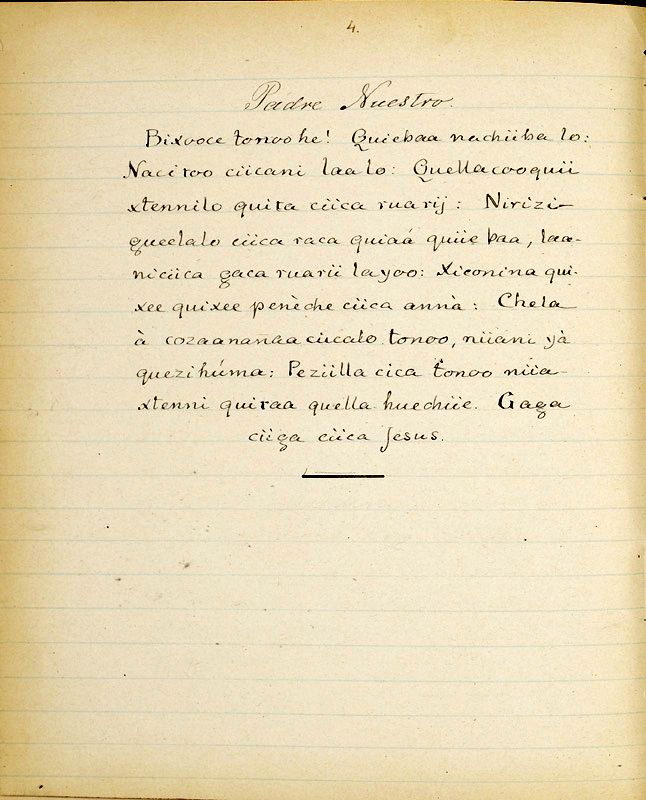 4.
Padre Nuestro.
Bixooce tonoo he! Quiebaa nachiiba lo:
Naci too ciicani laa lo: Quellacooquii
xtennilo quita ciica ruarij: Nirizi-
gueelalo ciica raca quiaá quiie baa, laa-
niciica gaca ruarii layoo: Xiconina qui-
xee quixee penèche ciica annà: Chela
à cozaanañaa ciicalo tonoo, niiani yà
quezihúma: Peziilla cica tonoo niia-
xtenni quiraa quella huechiie. Gaga
ciiga ciica Jesus.